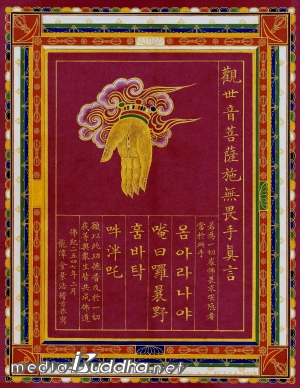 觀世音菩薩施無畏手眞言
若爲一切處怖畏不安隱者
當於此手
옴아라나야
唵曰羅曩野
훔바탁
吽泮吒
願以此功德普及於一切
我等與衆生皆共成佛道
佛紀二五四七年二月
mediaBuddha.net